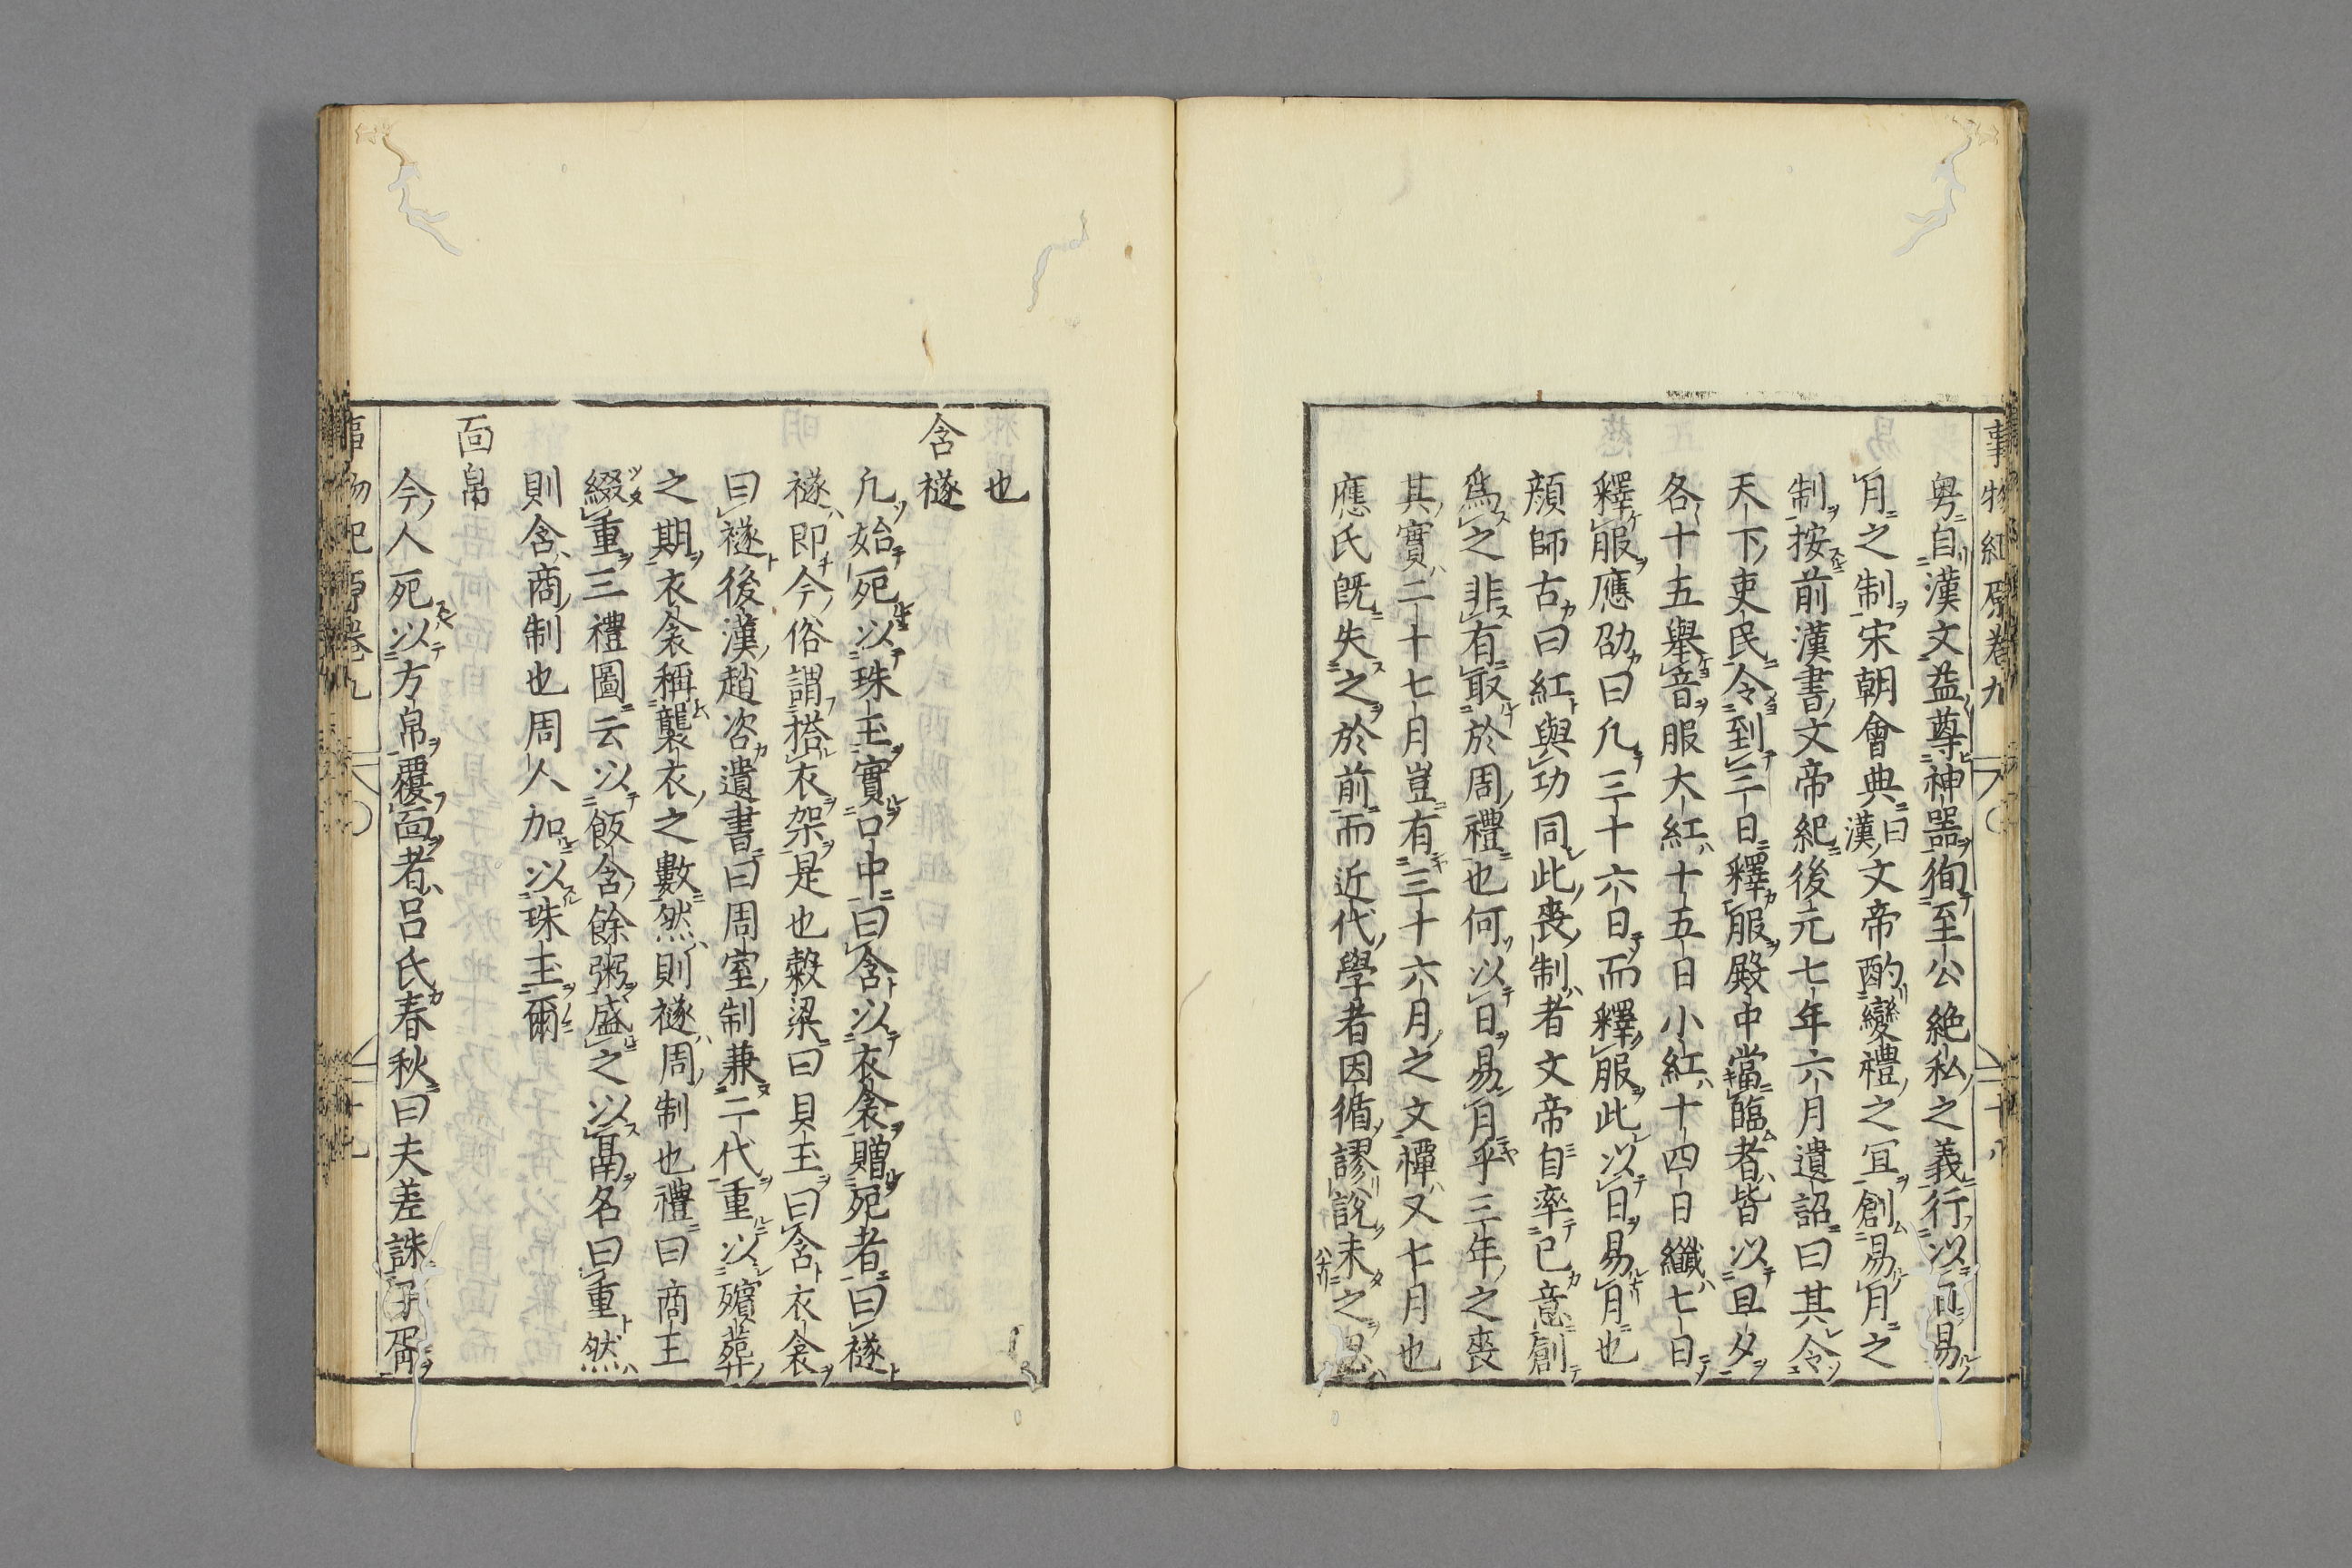 事物紀原卷九 十八
粤自漢文益尊神器徇至公絶私之義行以日易
月之制宋朝會典曰漢文帝酌變禮之宜創易月之
制按前漢書文帝紀後元七年六月遺詔曰其令
天下吏民令到三日釋服殿中當臨者皆以旦夕
各十五舉音服大紅十五日小紅十四日纖七日
釋服應劭曰凡三十六日而釋服此以日易月也
顔師古曰紅與功同此喪制者文帝自率已意創
爲之非有取於周禮也何以日易月乎三年之喪
其實二十七月豈有三十六月之文禫又七月也
應氏既失之於前而近代學者因循謬說未之思
也
含襚
凡始死以珠玉實口中曰含以衣衾贈死者曰襚
襚即今俗謂搭衣架是也穀梁曰貝玉曰含衣衾
曰襚後漢趙咨遺書曰周室制兼二代重以殯葬
之期衣衾稱襲衣之數然則襚周制也禮曰商主
綴重三禮圖云以飯含餘粥盛之以鬲名曰重然
則含商制也周人加以珠玉爾
面帛
今人死以方帛覆面者呂氏春秋曰夫差誅子胥
事物紀原卷九 十九